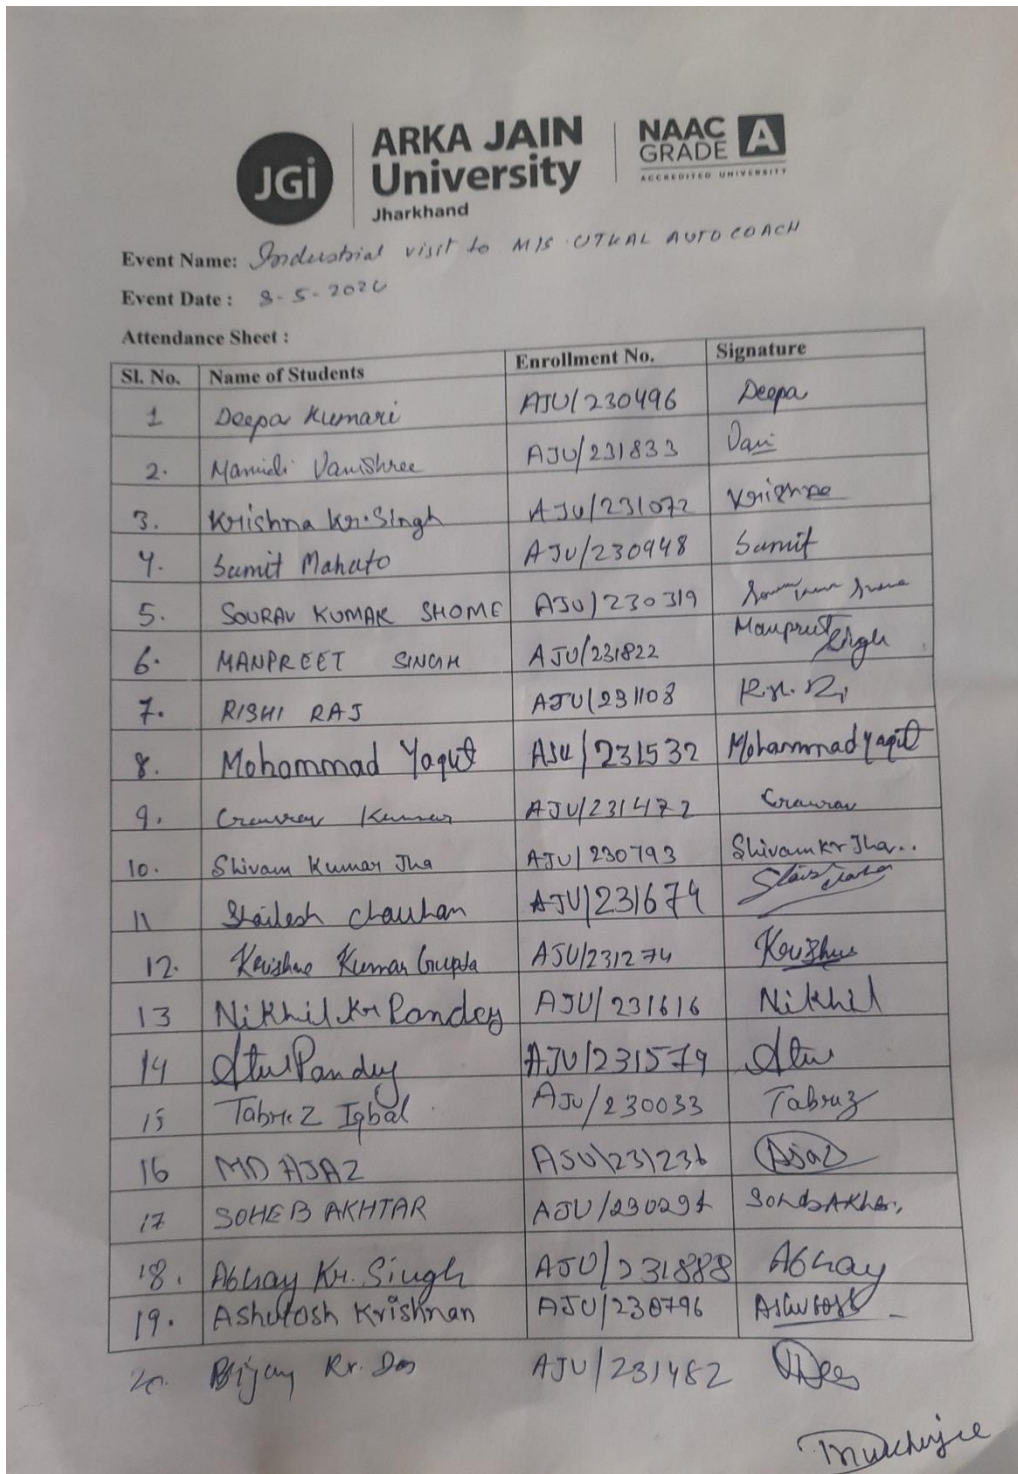 JGi
ARKA JAIN
University
Jharkhand
NAAC
GRADE A
ACCREDITED UNIVERSITY
Event Name: Industrial visit to M/S UTKAL AUTO COACH
Event Date : 8-5-2024
Attendance Sheet :
Sl. No. Name of Students Enrollment No. Signature
1 Deepa Kumari AJU/230496 Deepa
2. Mamidi Vanishree AJU/231833 Vani
3. Krishna Kr. Singh AJU/231072 Krishna
4. Sumit Mahato AJU/230948 Sumit
5. SOURAV KUMAR SHOME AJU/230319
6. MANPREET SINGH AJU/231822 Manpreet Singh
7. RISHI RAJ AJU/231108
8. Mohammad Yaqut AJU/231532 Mohammad Yaqut
9. Gaurav Kumar AJU/231472 Gaurav
10. Shivam Kumar Jha AJU/230793 Shivam Kr Jha..
11 Shailesh Chauhan AJU/231674
12. Krishna Kumar Gupta AJU/231274 Krishna
13 Nikhil Kr Pandey AJU/231616 Nikhil
14 Atul Pandey AJU/231579 Atul
15 Tabrez Iqbal AJU/230033 Tabrez
16 MD AJAZ AJU/231236 Ajaz
17 SOHEB AKHTAR AJU/230291
18. Abhay Kr. Singh AJU/231888 Abhay
19. Ashutosh Krishnan AJU/230796 Ashutosh
20. Bijay Kr. Das AJU/231482 Das
Mukherjee